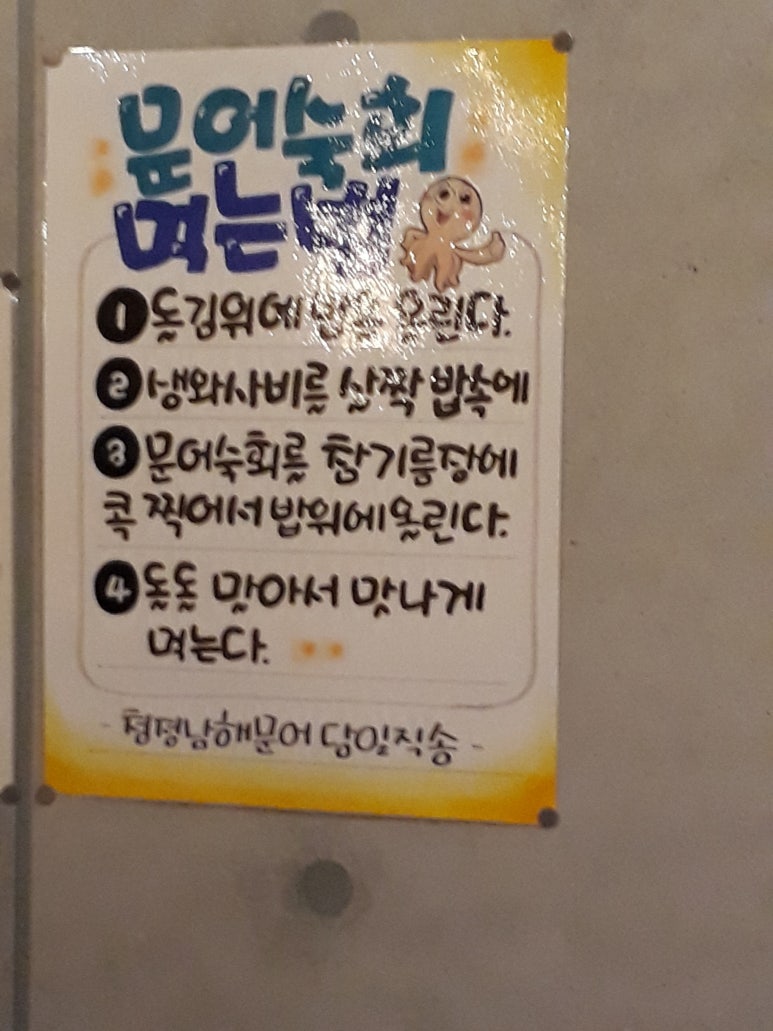 문어숙회
먹는법
1 돌김위에 밥을 올린다.
2 생와사비를 살짝 밥속에
3 문어숙회를 참기름장에
콕 찍어서 밥위에 올린다.
4 돌돌 말아서 맛나게
먹는다.
- 청정남해문어 당일직송 -